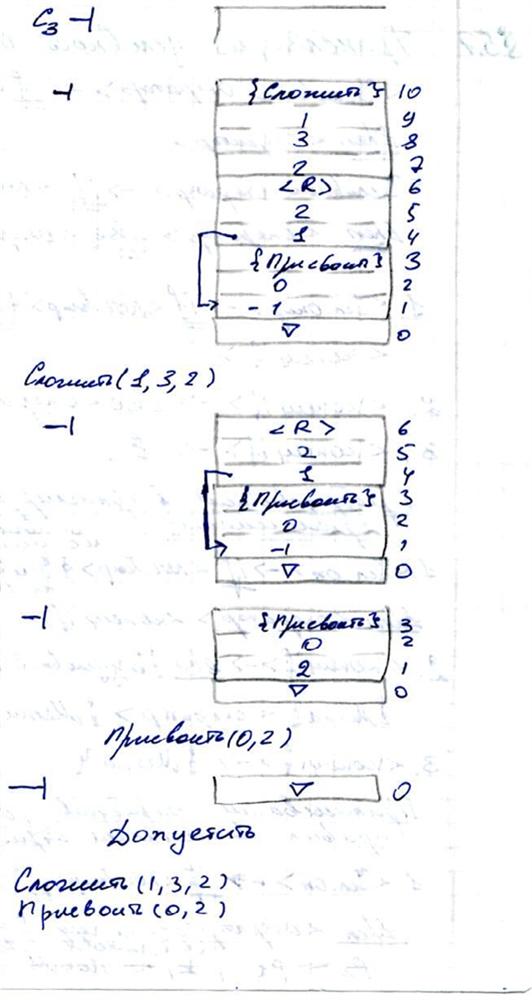 C₃ ⊣
⊣ {Сложить} 10
1 9
3 8
2 7
<R> 6
2 5
1 4
{Присвоить} 3
0 2
-1 1
▽ 0
Сложить(1,3,2)
⊣ <R> 6
2 5
1 4
{Присвоить} 3
0 2
-1 1
▽ 0
⊣ {Присвоить} 3
0 2
2 1
▽ 0
Присвоить(0,2)
⊣ ▽ 0
Допустить
Сложить(1,3,2)
Присвоить(0,2)